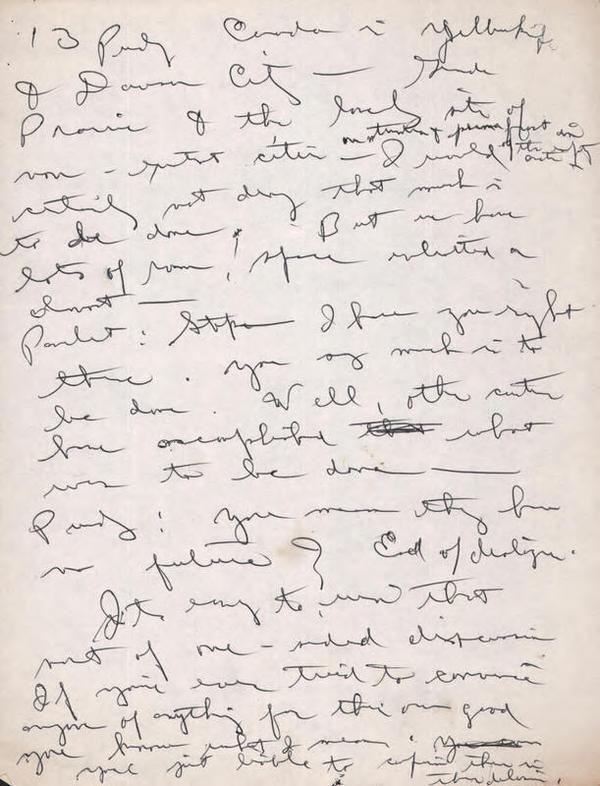 13 Purdy Canada is Yellowknife
& Dawson City — Grande
Prairie & the lovely site of
non-existent cities — I would
certainly not deny that much is
to be done! But we have
lots of room, space
almost —
Poulet: Stop — I have you right
there. You say much is to
be done. Well, other cities
have accomplished that what
was to be done —
Purdy: You mean they have
no future? End of dialogue.
It's easy to win that
sort of one-sided discussion
If you've ever tried to convince
anyone of anything for their own good
you know what I mean. You
you're just liable to confirm them in
their delusion.